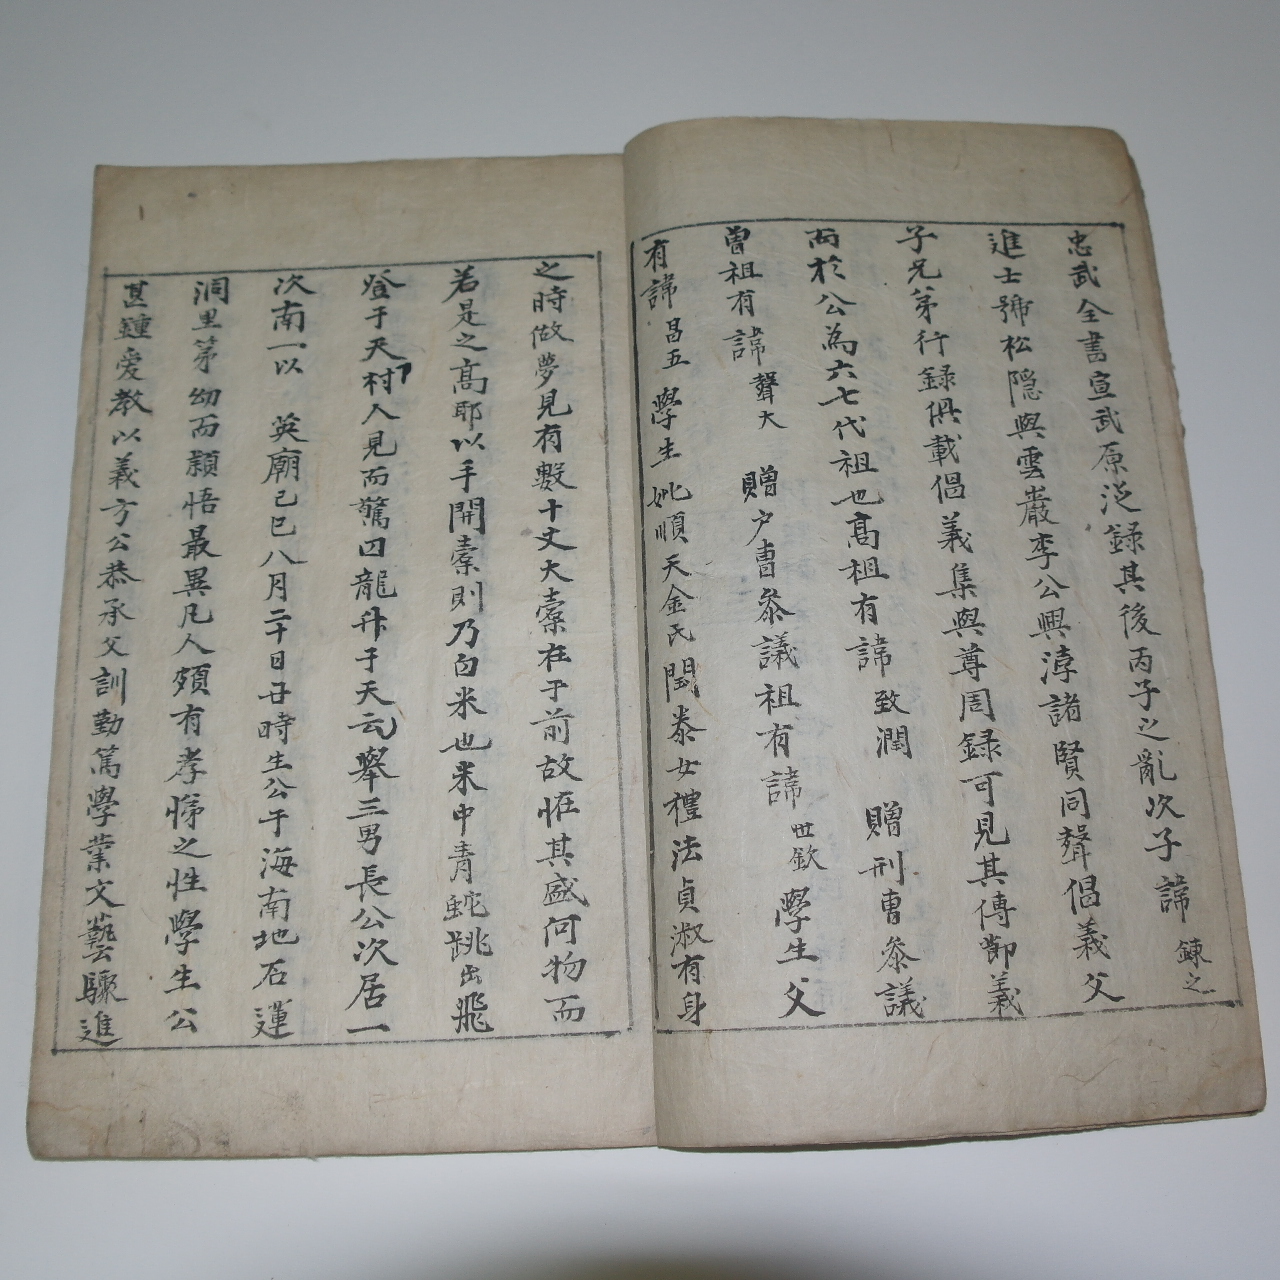 忠武全書宣武原從錄其後丙子之亂次子諱鍊之
進士號松隱與雲巖李公興浡諸賢同聲倡義父
子兄弟行錄俱載倡義集與尊周錄可見其傳節義
而於公為六七代祖也高祖有諱致潤 贈刑曹參議
曾祖有諱聲大 贈戶曹參議祖有諱世欽學生父
有諱昌五學生妣順天金氏閏泰女禮法貞淑有身
之時做夢見有數十丈大橐在于前故恠其盛何物而
若是之高耶以手開橐則乃白米也米中青蛇跳出飛
登于天村人見而驚曰龍升于天云舉三男長公次居一
次南一以 英廟己巳八月二十日丑時生公于海南地石運
洞里第幼而穎悟最異凡人頗有孝悌之性學生公
甚鍾愛教以義方公恭承父訓勤篤學業文藝驟進